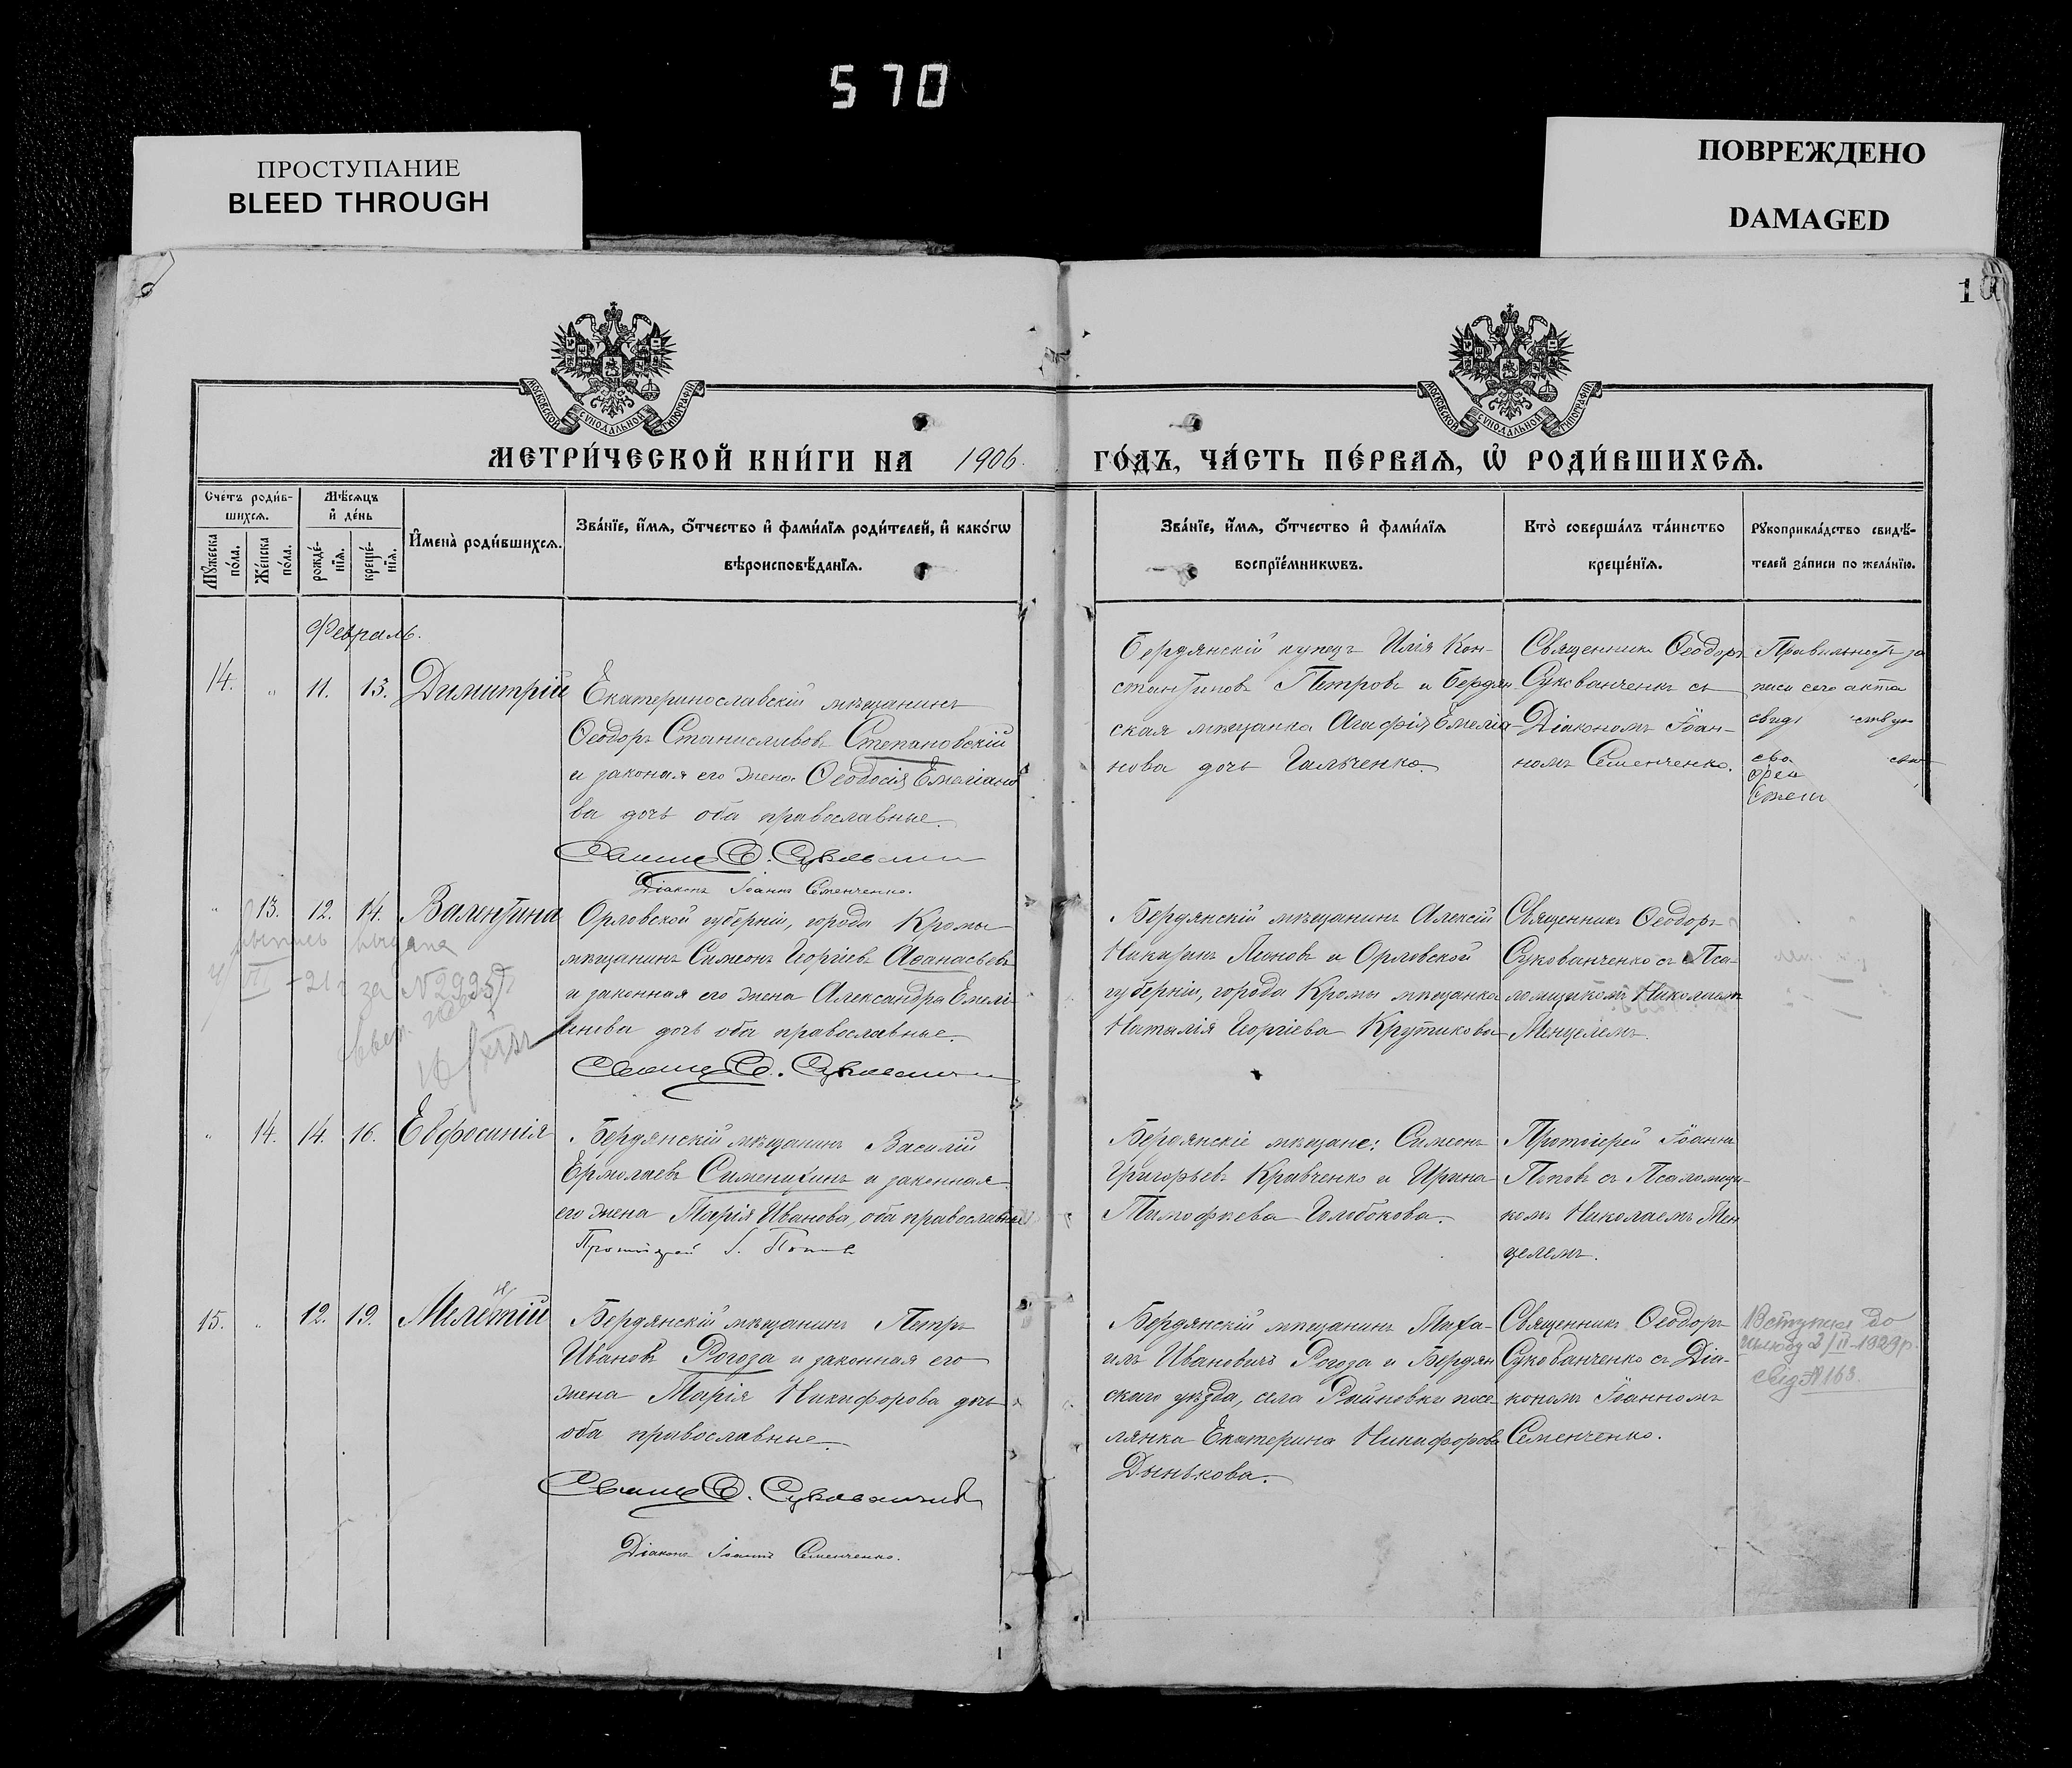 570
ПРОСТУПАНИЕ
BLEED THROUGH
ПОВРЕЖДЕНО
DAMAGED
10
МОСКОВСКОЙ СѴНОДАЛЬНОЙ ТИПОГРАФІИ
МОСКОВСКОЙ СѴНОДАЛЬНОЙ ТИПОГРАФІИ
МЕТРИ́ЧЕСКОЙ КНИ́ГИ НА 1906. ГО́ДЪ, ЧА́СТЬ ПЕ́РВАѦ, Ѡ РОДИ́ВШИХСѦ.
Сче́тъ роди́в-
шихсѧ.
Мꙋ́жеска по́ла.
Же́нска по́ла.
Мѣ́сѧцъ
и҆ де́нь
рожде́-
нїѧ.
креще́-
нїѧ.
И҆мена̀ роди́вшихсѧ.
Зва́нїе, и҆́мѧ, ѻ҆́тчество и҆ фами́лїѧ роди́телей, и҆ како́гѡ
вѣроисповѣ́данїѧ.
Зва́нїе, и҆́мѧ, ѻ҆́тчество и҆ фами́лїѧ
воспрїе́мникѡвъ.
Кто̀ соверша́лъ та́инство
креще́нїѧ.
Рꙋкоприкла́дство свидѣ́-
телей за́писи по жела́нїю.
Февраль.
14. " 11. 13. Димитрій
Екатеринославскій мѣщанинъ
Ѳеодоръ Станиславовъ Степановскій
и законая его жена Ѳеодосія Емеліано
ва дочь оба православные.
Діаконъ Іоаннъ Семенченко.
Бердянскій купецъ Илія Кон-
стантиновъ Петровъ и Бердян-
ская мѣщанка Агафія Емеліа-
нова дочь Гальченко.
Священникъ Ѳеодоръ
Сукованченко съ
Діакономъ Іоан-
номъ Семенченко.
Правильность за
писи сего акта
" 13. 12. 14. Валентина
выпись выдана
VII - 21 г за № 2925
Орловской губерніи, города Кромы
мѣщанинъ Симеонъ Георгіев Аѳанасьевъ
и законная его жена Александра Емелі
анова дочь оба православные.
Бердянскій мѣщанинъ Алексій
Никитинъ Леонов и Орловской
губерніи, города Кромы мѣщанка
Наталія Георгіева Крутикова
Священникъ Ѳеодоръ
Сукованченко съ Пса-
ломщикомъ Николаемъ
Менцелемъ.
" 14. 14. 16. Евфросинія
Бердянскій мѣщанинъ Василій
Ермолаевъ Сименихинъ и законная
его жена Марія Иванова, оба православные
Протоіерей І. Попов
Бердянскіе мѣщане: Симеонъ
Григорьевъ Кравченко и Ирина
Тимофѣева Голобокова.
Протоіерей Іоаннъ
Поповъ съ Псаломщи-
комъ Николаемъ Мен
целемъ.
15. " 12. 19. Мелетій
Бердянскій мѣщанинъ Петръ
Ивановъ Рогоза и законная его
жена Марія Никифорова дочь
оба православные.
Діаконъ Іоаннъ Семенченко.
Бердянскій мѣщанинъ Миха-
илъ Ивановичъ Рогоза и Бердян
скаго уѣзда, села Райновки посе-
лянка Екатерина Никифорова
Дынькова.
Священникъ Ѳеодоръ
Сукованченко съ Діа-
кономъ Іоанномъ
Семенченко.
Вступил до
шлюбу 2/II-1929 р.
свід № 163.